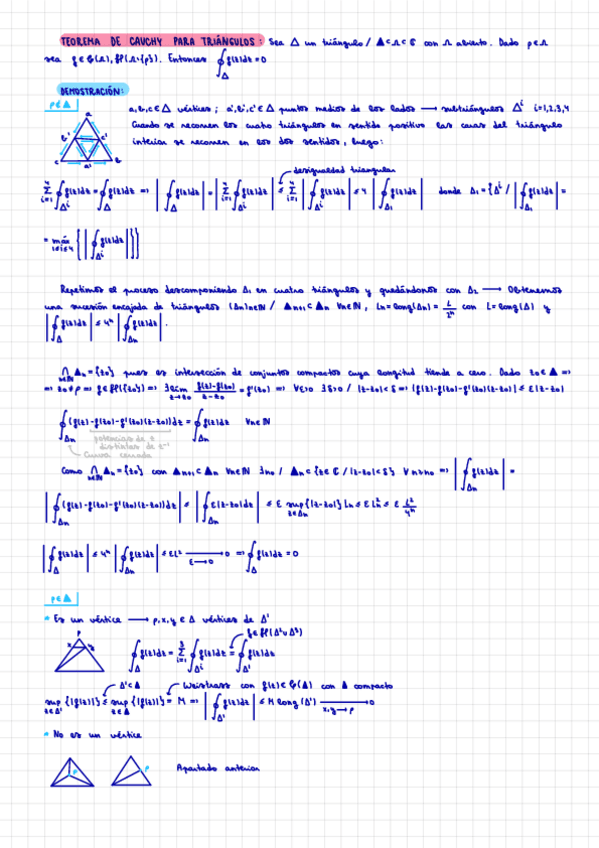 TEOREMA DE CAUCHY PARA TRIÁNGULOS: Sea △ un triángulo / ▲⊂Ω⊂ℂ con Ω abierto. Dado p∈Ω
sea f∈C(Ω), H(Ω\{p}). Entonces ∮_△ f(z)dz = 0
DEMOSTRACIÓN:
a, b, c ∈ △ vértices ; a', b', c' ∈ △ puntos medios de los lados → subtriángulos △^i i=1,2,3,4
Cuando se recorren los cuatro triángulos en sentido positivo las caras del triángulo
interior se recorren en los dos sentidos, luego:
desigualdad triangular
∑_{i=1}^4 ∮_{△^i} f(z)dz = ∮_△ f(z)dz ⇒ |∮_△ f(z)dz| = |∑_{i=1}^4 ∮_{△^i} f(z)dz| ≤ ∑_{i=1}^4 |∮_{△^i} f(z)dz| ≤ 4 |∮_{△_1} f(z)dz| donde △_1 = {△^i / |∮_{△_1} f(z)dz| =
= máx_{1≤i≤4} {|∮_{△^i} f(z)dz|}}
Repetimos el proceso descomponiendo △_1 en cuatro triángulos y quedándonos con △_2 → Obtenemos
una sucesión encajada de triángulos (△_n)n∈ℕ / ▲_{n+1} ⊂ ▲_n ∀n∈ℕ, L_n = long(△_n) = L/2^n con L = long(△) y
|∮_△ f(z)dz| ≤ 4^n |∮_{△_n} f(z)dz|.
⋂_{n∈ℕ} ▲_n = {z_0} pues es intersección de conjuntos compactos cuya longitud tiende a cero. Dado z_0 ∈ ▲ ⇒
⇒ z_0 ≠ p ⇒ f∈H({z_0}) ⇒ ∃ lím_{z→z_0} (f(z)-f(z_0))/(z-z_0) = f'(z_0) ⇒ ∀ε>0 ∃δ>0 / |z-z_0|<δ ⇒ |f(z)-f(z_0)-f'(z_0)(z-z_0)| ≤ ε|z-z_0|
∮_{△_n} (f(z)-f(z_0)-f'(z_0)(z-z_0))dz = ∮_{△_n} f(z)dz ∀n∈ℕ
potencias de z
distintas de z^{-1}
Curva cerrada
Como ⋂_{n∈ℕ} ▲_n = {z_0} con ▲_{n+1} ⊂ ▲_n ∀n∈ℕ ∃n_0 / ▲_n ⊂ {z∈ℂ / |z-z_0|<δ} ∀n>n_0 ⇒ |∮_{△_n} f(z)dz| =
|∮_{△_n} (f(z)-f(z_0)-f'(z_0)(z-z_0))dz| ≤ |∮_{△_n} ε|z-z_0|dz| ≤ ε sup_{z∈△_n} {|z-z_0|} L_n ≤ ε L_n^2 ≤ ε L^2/4^n
|∮_△ f(z)dz| ≤ 4^n |∮_{△_n} f(z)dz| ≤ εL^2 →_{ε→0} 0 ⇒ ∮_△ f(z)dz = 0
p∈▲
* Es un vértice → p, x, y ∈ △ vértices de △'
f∈H(△^2∪△^3)
∮_△ f(z)dz = ∑_{i=1}^3 ∮_{△^i} f(z)dz = ∮_{△'} f(z)dz
△'⊂▲
Weistrass con f(z)∈C(▲) con ▲ compacto
sup_{z∈△'} {|f(z)|} ≤ sup_{z∈▲} {|f(z)|} = M ⇒ |∮_{△'} f(z)dz| ≤ M long(△') →_{x,y→p} 0
* No es un vértice
Apartado anterior